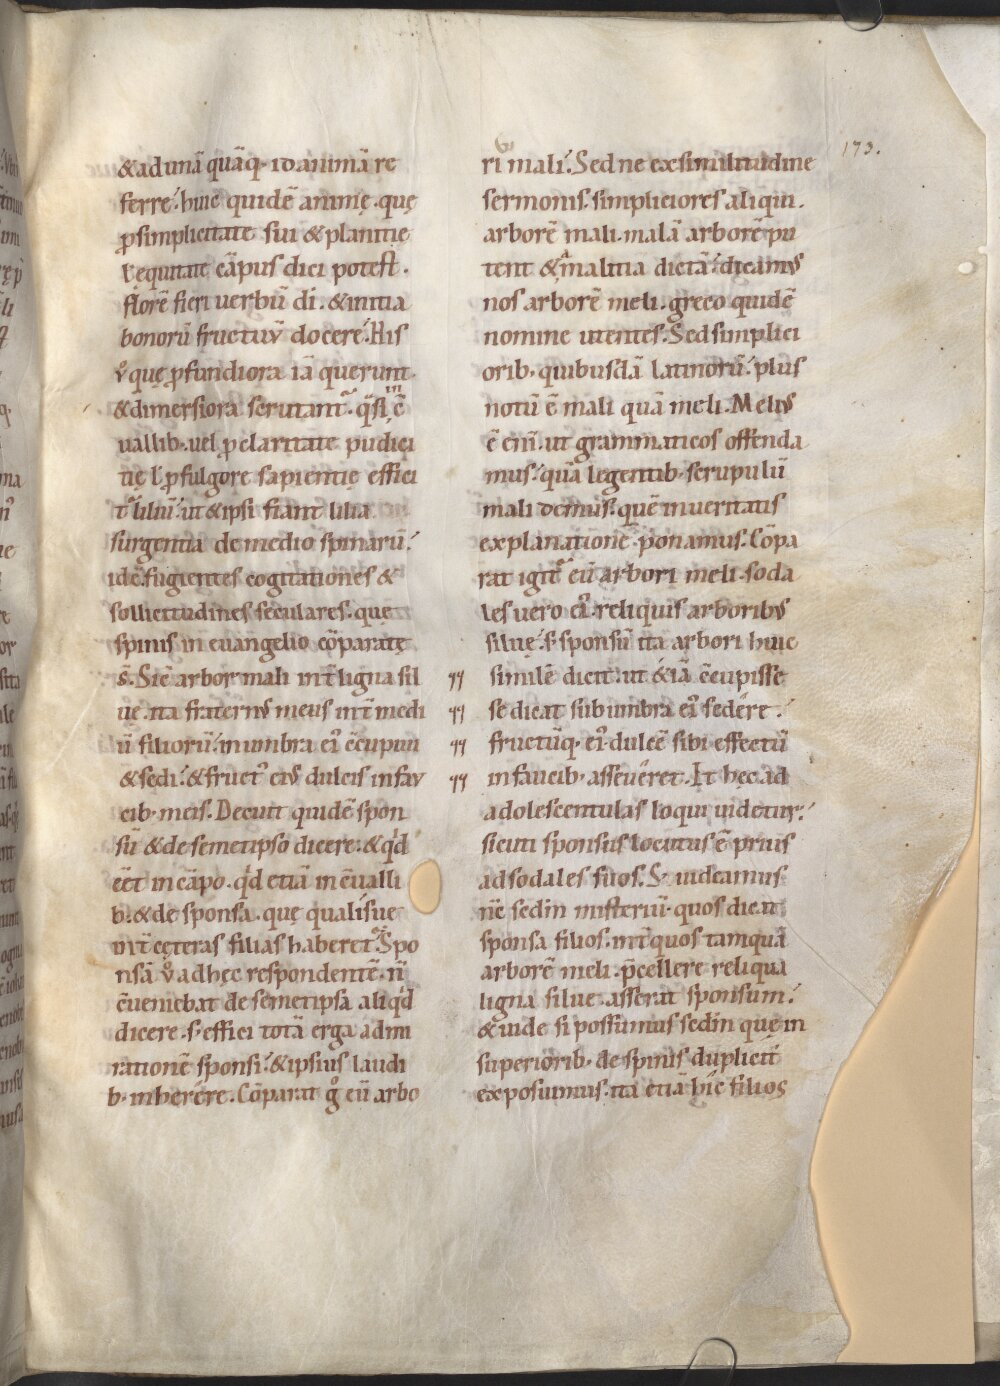 & ad unā quāq· id animā re
ferré. huic quidē animę. quę
ꝓ simplicitate sui & planitię
ł ęquitate cāpus dici potest.
florē fieri uerbū dī. & initia
bonorū fructuū docere. His
v̊ quę ꝓfundiora iā querunt.
& dimersiora serutant᷑. q̄si in ē
uallib· uel ꝓ claritate pudici
tię ł ꝓ fulgore sapientię effici
t᷑ liliū. ut & ipsi fiant lilia
surgentia de medio spinarū.
idē. fugientes cogitationes &
sollicitudines seculares. quę
spinis in euangelio cōparatę
s̄. Sic arbor mali int̄ ligna sil
uę. ita fraternus meus int̄ medi
ū filiorū. in umbra eꝰ c̄cupiui
& sedi. & fructꝰ eius dulcis in fau
cib· meis. Decuit quidē spon
sū & de semetipso dicere. & qđ
eēt in cāpo. qđ etiā in c̄ualli
b. & de sponsa. que qualis ue
int̄ cęteras filias haberet᷑. Spo
nsā v̊ ad hęc respondentē. ñ
c̄ueniebat de semetipsa aliqđ
dicere. s· effici totā erga admi
rationē sponsi. & ipsius laudi
b· inherére. Cōparat g̊ eū arbo
173.
ri mali. Sed ne ex similitudine
sermonis. simpliciores aliqui.
arborē mali. malā arborē pu
tent & a malitia dictā. dicamus
nos arborē meli. greco quidē
nomine utentes. Sed simplici
orib· quibusdā latinorū. plus
notū ē mali quā meli. Melius
ē eni. ut grammaticos offenda
mus. quā legentib· scrupulū
mali demus. quē in ueritatis
explanatione ponamus. Cōpa
rat igit᷑ eū arbori meli. soda
les uero eꝰ reliquis arboribus
siluę. s· sponsū ita arbori huic
similē dicit. ut & iā c̄cupisse
se dicat sub umbra eꝰ sedére.
fructūq· eꝰ dulcē sibi effectū
in faucib· asseueret. Et hęc ad
adolescentulas loqui uidetur.
sicuti sponsus locutus ē prius
ad sodales suos. S· uideamus
nē sed̄in misteriū· quos dicat
sponsa filios. int̄ quos tamquā
arborē meli. p̄cellere reliqua
ligna silue. asserat sponsum.
& uide si possumus sed̄in quę in
superiorib· de spinis duplicit̄
exposuimus. ita etiā hic filios